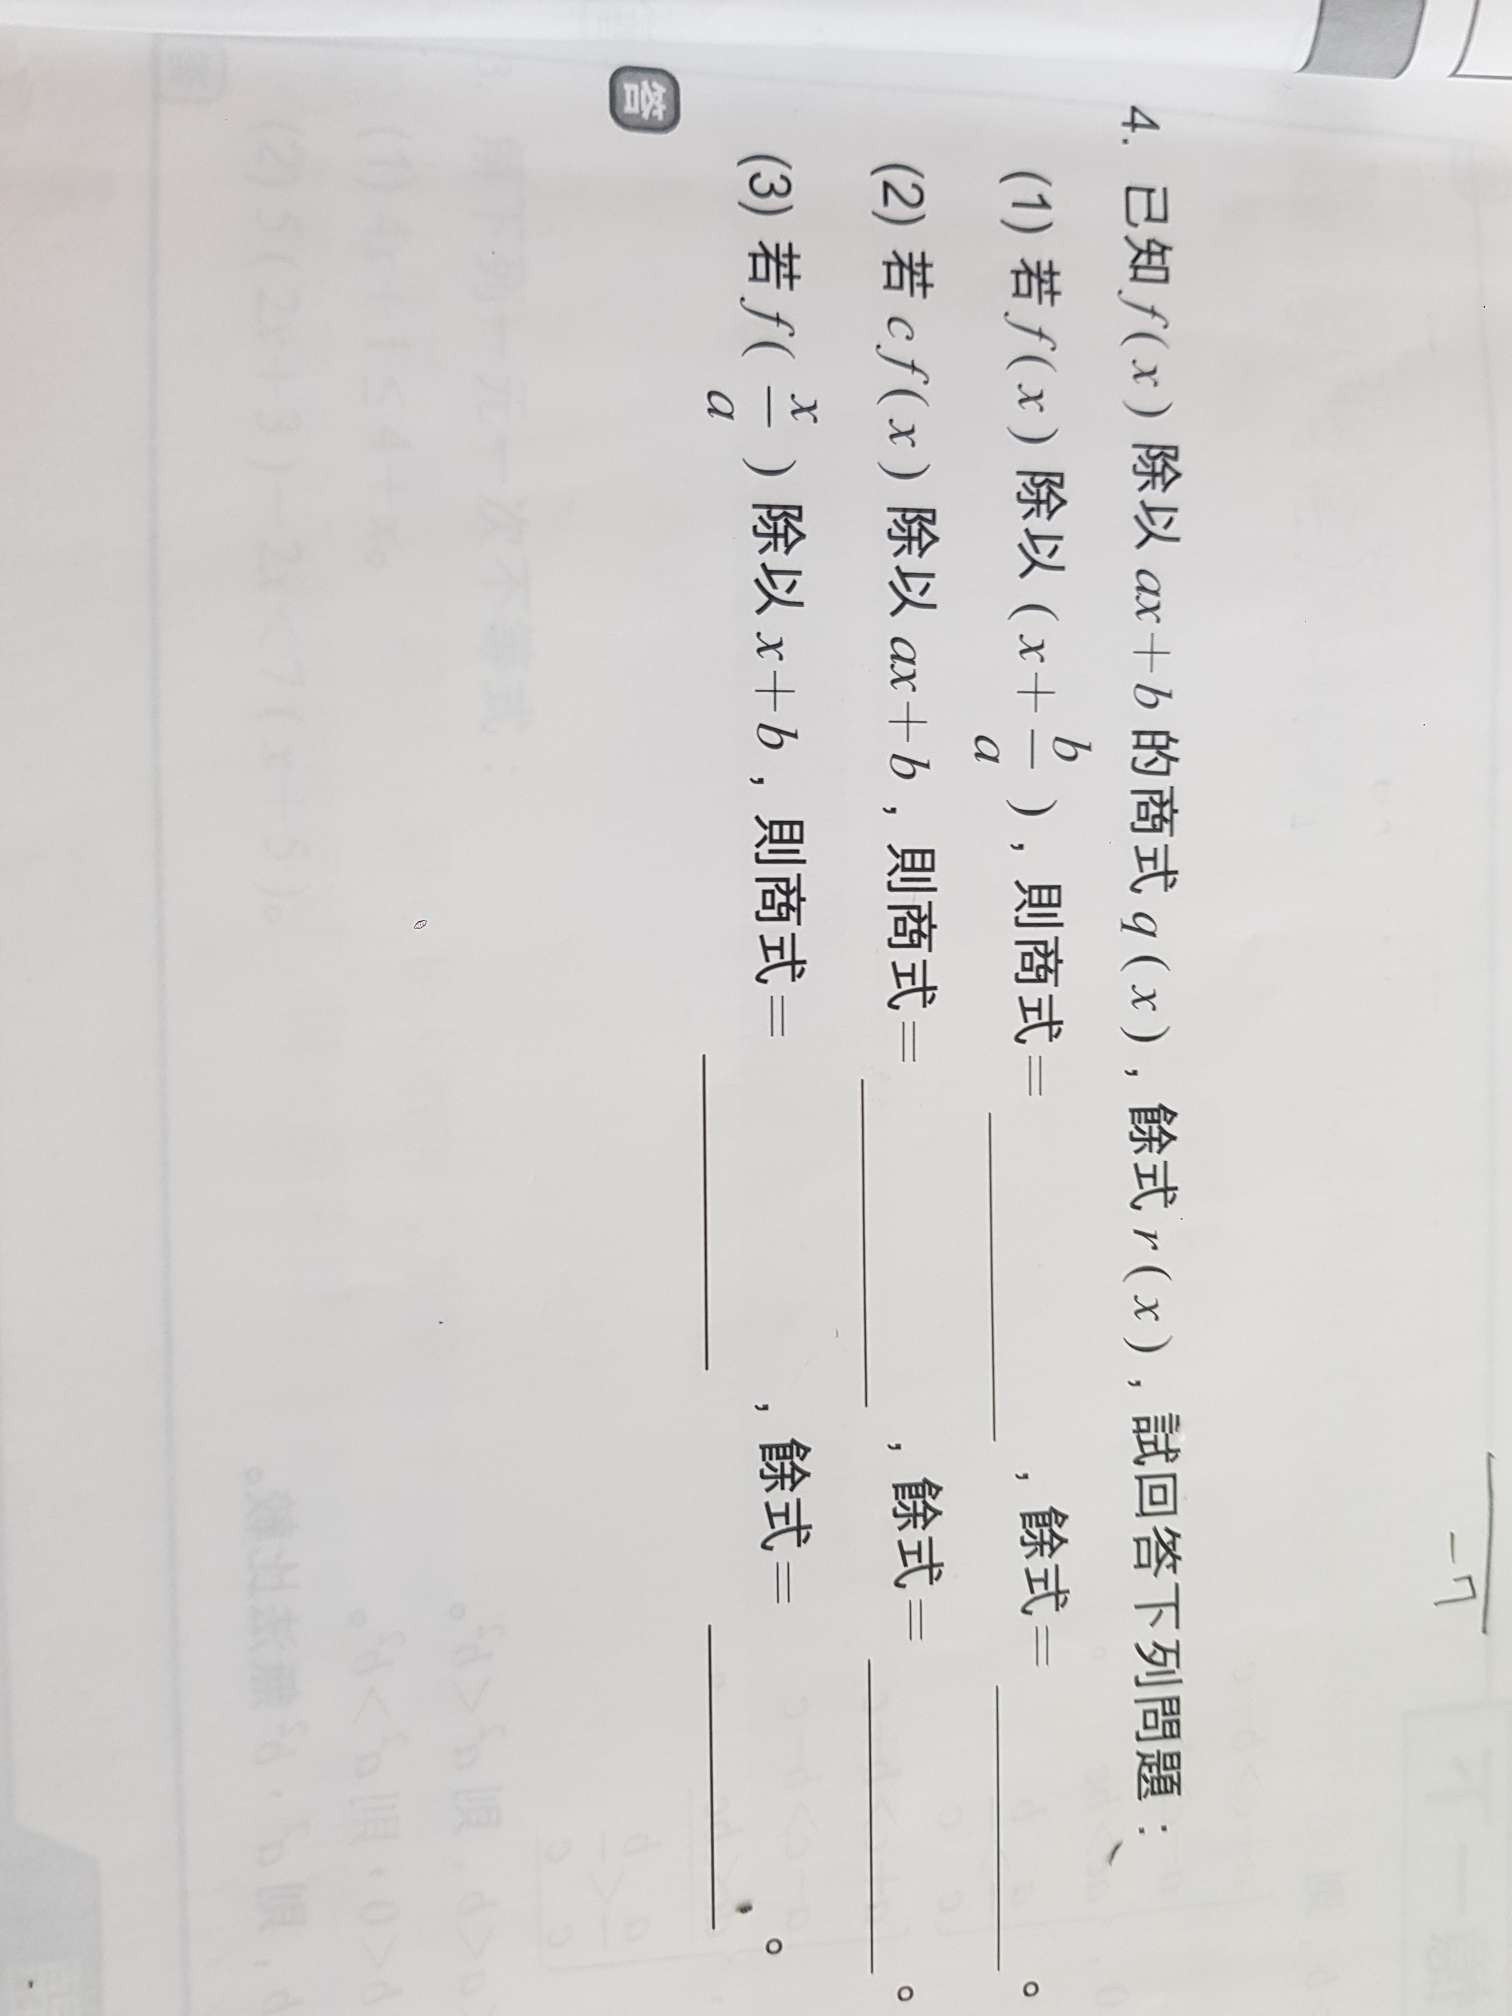 -7
4. 已知 f(x) 除以 ax+b 的商式 q(x)，餘式 r(x)，試回答下列問題：
(1) 若 f(x) 除以 (x+b/a)，則商式=________，餘式=________。
(2) 若 c f(x) 除以 ax+b，則商式=________，餘式=________。
(3) 若 f(x/a) 除以 x+b，則商式=________，餘式=________。
答